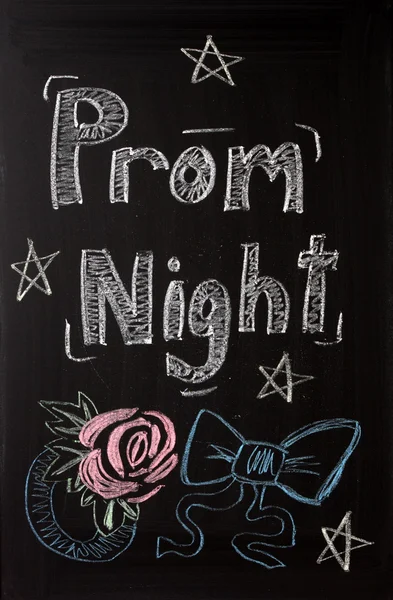 Prom
Night